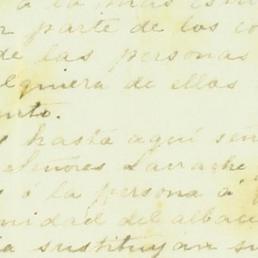 á la más
parte de los co
de las personas
lquiera de ellos
nto.
hasta aquí señ
eñores Larrache
s ó la persona á
nidad del albac
ia sustituyan su